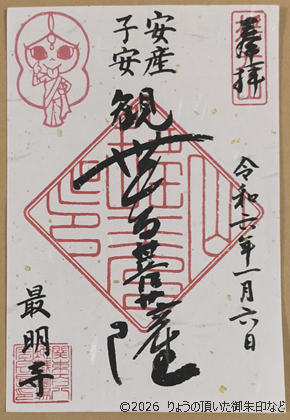 奉拝
令和六年一月六日
安産
子安
観世音菩薩
最明寺
©2026 りょうの頂いた御朱印など